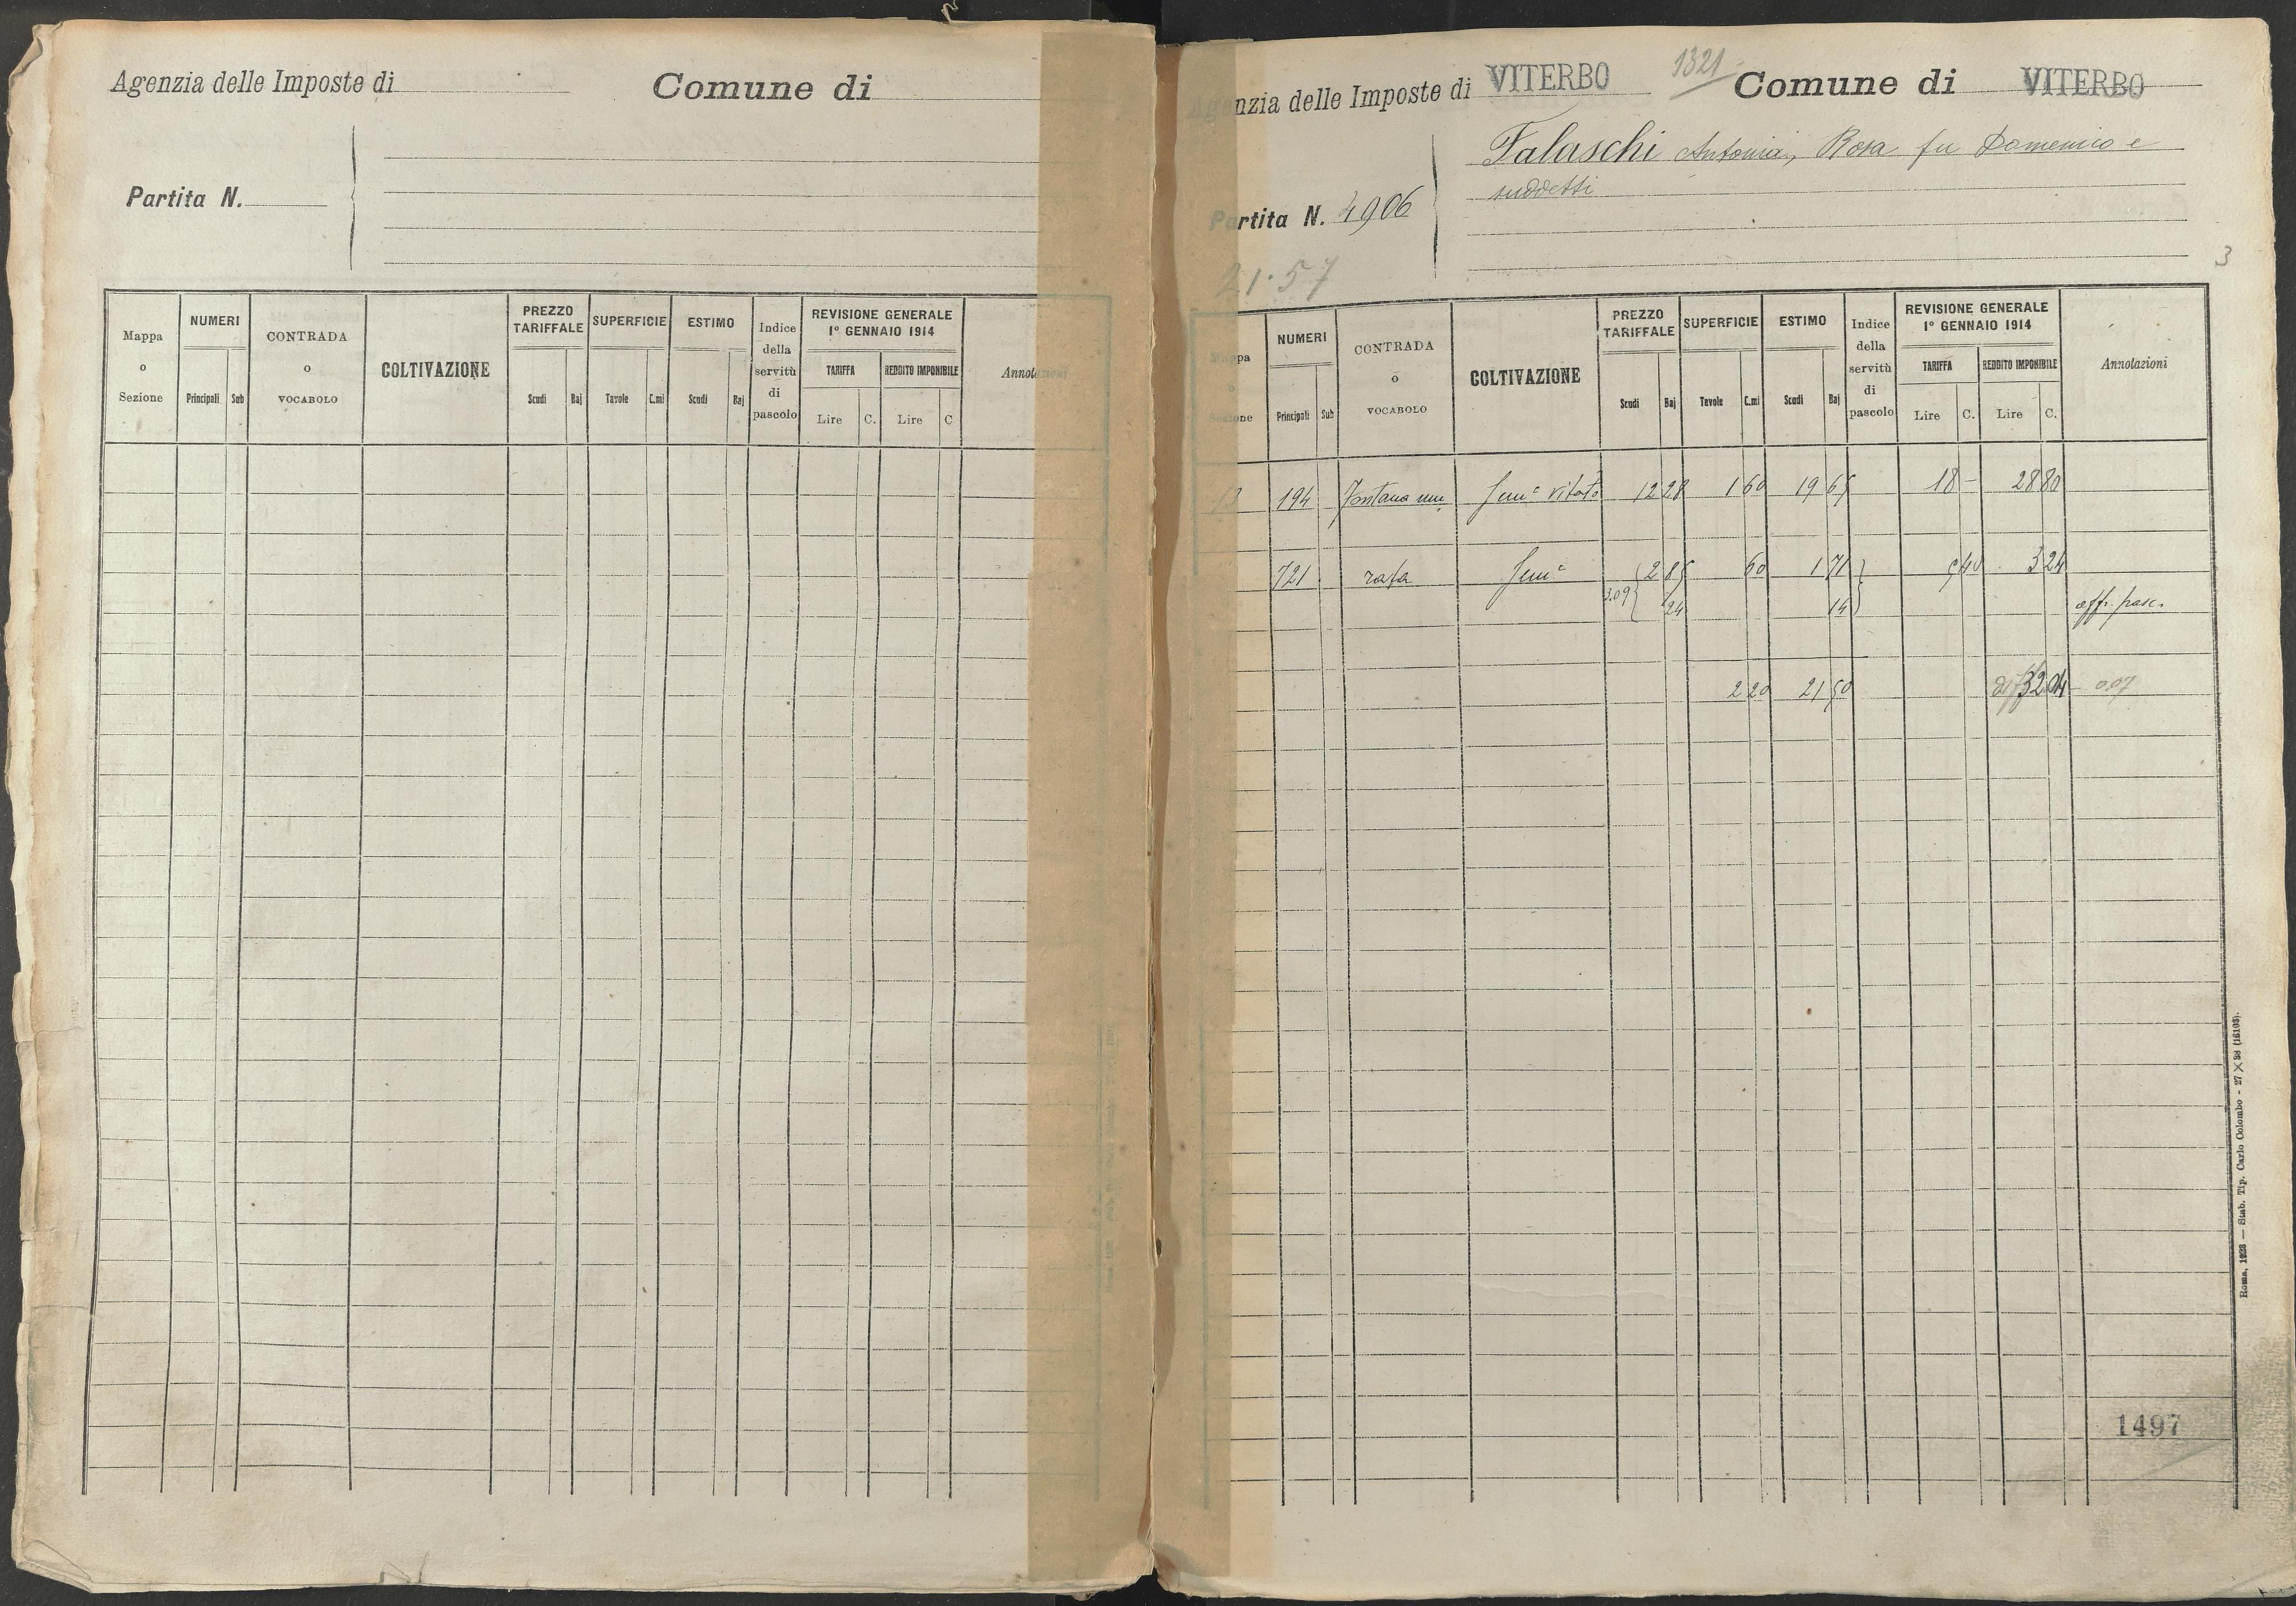 Agenzia delle Imposte di
Comune di
Partita N.
Mappa o Sezione
NUMERI
Principali Sub
CONTRADA o VOCABOLO
COLTIVAZIONE
PREZZO TARIFFALE
Scudi Baj
SUPERFICIE
Tavole C.mi
ESTIMO
Scudi Baj
Indice della servitù di pascolo
REVISIONE GENERALE
1° GENNAIO 1914
TARIFFA REDDITO IMPONIBILE
Lire C. Lire C
Annotazioni
Agenzia delle Imposte di VITERBO 1321 Comune di VITERBO
Falaschi Antonia, Rosa fu Domenico e
suddetti
Partita N. 4906
3
21.57
Mappa o Sezione
NUMERI
Principali Sub
CONTRADA o VOCABOLO
COLTIVAZIONE
PREZZO TARIFFALE
Scudi Baj
SUPERFICIE
Tavole C.mi
ESTIMO
Scudi Baj
Indice della servitù di pascolo
REVISIONE GENERALE
1° GENNAIO 1914
TARIFFA REDDITO IMPONIBILE
Lire C. Lire C.
Annotazioni
13 194 Fontana Sem.e vitato 12 28 1 60 19 65 18 – 28 80
721 Sem.e 2 85 60 1 71 5 40 3 24
3.09 24 14 aff. pasc.
2 20 21 50 32 04 0.07
1497
Roma, 1923 — Stab. Tip. Carlo Colombo - 27 × 38 (16103).